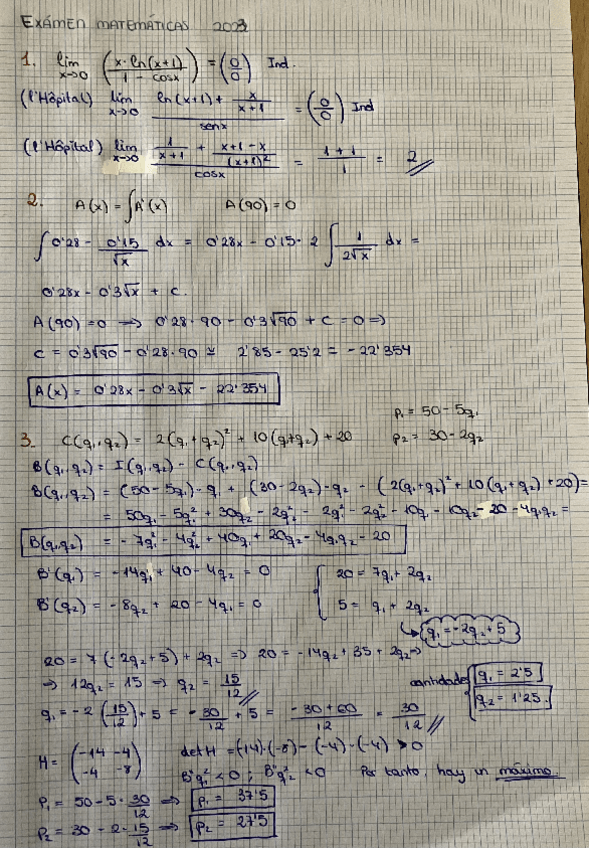 EXÁMEN MATEMÁTICAS 2023
1. lim x→0 (x·ln(x+1) / 1 - cosx) = (0/0) Ind.
(l'Hôpital) lim x→0 (ln(x+1) + x/(x+1)) / senx = (0/0) Ind
(l'Hôpital) lim x→0 (1/(x+1) + (x+1-x)/(x+1)²) / cosx = (1+1)/1 = 2
2. A(x) = ∫A'(x) A(90) = 0
∫ 0'28 - 0'15/√x dx = 0'28x - 0'15 · 2 ∫ 1/(2√x) dx =
0'28x - 0'3√x + c.
A(90) = 0 ⇒ 0'28·90 - 0'3√90 + c = 0 ⇒
c = 0'3√90 - 0'28·90 ≅ 2'85 - 25'2 = -22'354
A(x) = 0'28x - 0'3√x - 22'354
p₁ = 50 - 5q₁
3. C(q₁,q₂) = 2(q₁+q₂)² + 10(q₁+q₂) + 20 p₂ = 30 - 2q₂
B(q₁,q₂) = I(q₁,q₂) - C(q₁,q₂)
B(q₁,q₂) = (50-5q₁)·q₁ + (30-2q₂)·q₂ - (2(q₁+q₂)² + 10(q₁+q₂) + 20) =
= 50q₁ - 5q₁² + 30q₂ - 2q₂² - 2q₁² - 2q₂² - 10q₁ - 10q₂ - 20 - 4q₁q₂ =
B(q₁q₂) = -7q₁² - 4q₂² + 40q₁ + 20q₂ - 4q₁q₂ - 20
B'(q₁) = -14q₁ + 40 - 4q₂ = 0 { 20 = 7q₁ + 2q₂
B'(q₂) = -8q₂ + 20 - 4q₁ = 0 5 = q₁ + 2q₂
q₁ = -2q₂ + 5
20 = 7(-2q₂+5) + 2q₂ ⇒ 20 = -14q₂ + 35 + 2q₂ ⇒
⇒ 12q₂ = 15 ⇒ q₂ = 15/12 cantidades q₁ = 2'5
q₂ = 1'25.
q₁ = -2(15/12) + 5 = -30/12 + 5 = (-30+60)/12 = 30/12
H = (-14 -4 / -4 -8) det H = (-14)·(-8) - (-4)·(-4) > 0
B''q₁² < 0 ; B''q₂² < 0 Por tanto, hay un máximo.
p₁ = 50 - 5·30/12 ⇒ p₁ = 37'5
p₂ = 30 - 2·15/12 ⇒ p₂ = 27'5